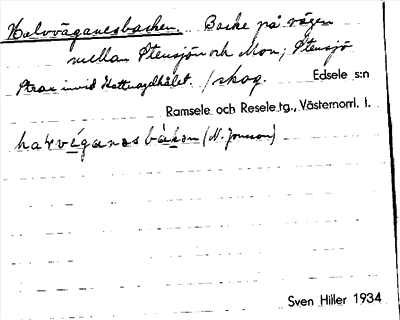 Halvväganesbacken. Backe på vägen
mellan Stensjön och Mon; Stensjö
Strax invid Kattnagelhålet. /skog. Edsele s:n
Ramsele och Resele tg., Västernorrl. l.
(N. Jonsson)
Sven Hiller 1934